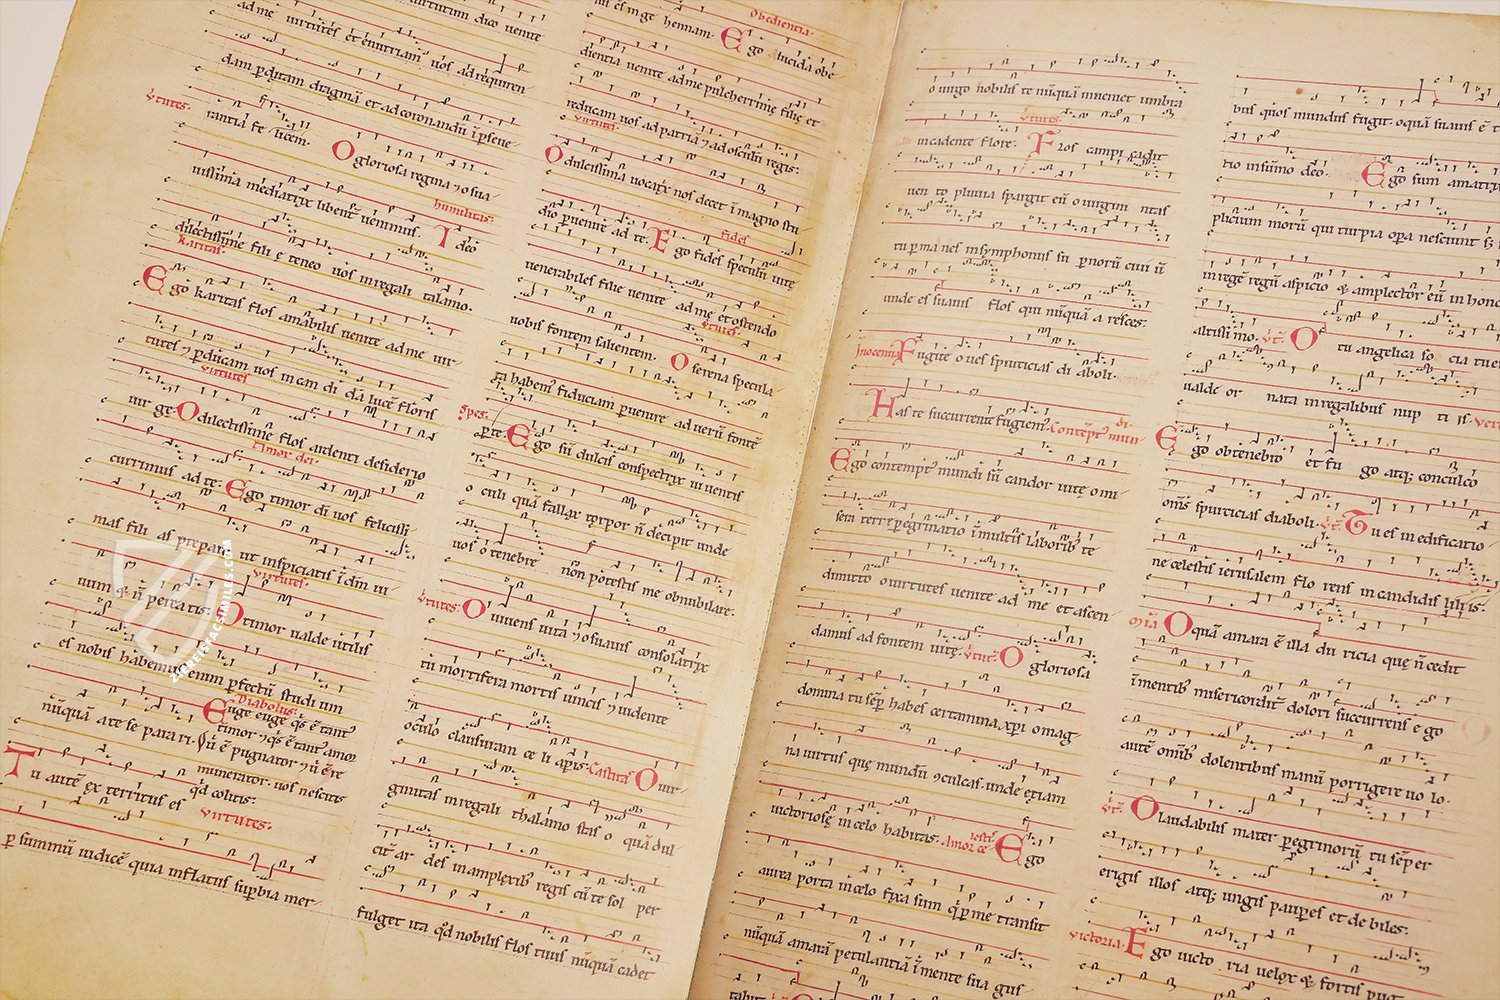 Obedientia.
virtutum dico venite
ad me virtutes et enutriam vos ad requiren
dam pditam dragmā et ad coronandū ī pseue-
rantia fe licem. O gloriosa regina ⁊ o sua
uissima mediatrix libenť venimus. I deo
humilitas:
dilectissime filie teneo uos in regali talamo.
karitas.
Ego karitas flos amabilis uenite ad me uir
tutes ⁊ pducam uos in can di dā lucē floris
virtutes
uir ge. O dilectissime flos ardenti desiderio
timor dei.
currimus ad te: Ego timor dī uos felicissi
mas fili as preparo ut inspiciatis ī dm̄ ui-
uum & n̄ pereatis:
virtutes.
O timor ualde utilis
es nobis habemus enim pfectū studi um
Diabolus:
nūquā a te se para ri. Euge euge qs ē tant'
timor ⁊ qs ē tant' amor
Vbi ē pugnator ⁊ ubi ē re
munerator. uos nescitis
qd colitis:
Tu autē ex territus es
virtutes:
p summū iudicē quia inflatus supbia mer-
us es in ge hennam. Ego lucida obe
dientia uenite ad me pulcherrimę filię et
reducam uos ad patriā ⁊ ad osculū regis:
virtutes.
O dulcissima uocatrix nos decet ī magno stu
dio puenire ad te. Ego fides speculū uitę
fides
uenerabiles filie uenite ad me et ostendo
uobis fontem salientem.
v̄tutes.
O serena specula
ta habem' fiduciam puenire ad uerū fontē
spes:
p te. Ego sū dulcis conspectrix uiuentis
o culi quā fallax torpor n̄ decipit unde
uos o tenebre non potestis me obnubilare.
v̄tutes: O uiuens uita ⁊ o suauis consolatrix
tu mortifera mortis uincis ⁊ uidente
oculo clausuram ce li apis. Castitas O uir-
ginitas in regali thalamo stas o quā dul
citer ar des in amplexib' regis cū te sol per
fulget ita qd nobilis flos tuus nūquā cadet
o uirgo nobilis te nūquā inueniet umbra
v̄tutes
in cadente flore. Flos campi cadit
uen to pluuia spargit eū o uirgini tas
tu pma nes in symphoniis su pnorū ciui ū
unde es suauis flos qui nūquā a resces:
Inocentia Fugite o ues spurcicias di aboli.
Has te succurrente fugiem'. Contēpt' mun-
di.
Ego contempt' mundi sū candor uitę o mi-
sera terre pegrinatio ī multis laborib' te
dimitto o uirtutes uenite ad me et ascen
damus ad fontem uitę. v̄tut: O gloriosa
domina tu semp habes certamina xpi o mag-
na uirtus quę mundū conculcas. unde etiam
uictoriose in celo habitas. Amor ce
lestis
Ego
aurea porta in celo fixa sum qsq p me transit
nūquā amarā petulantiā ī mente sua gus
tabit
bus quos mundus fugit. o quā suauis ē t
tio in sūmo deo. Ego sum amatrix
plicium morū qui turpia opa nesciunt sz
in regē regū aspicio & amplector eū in hono
altissi mo. v̄t: O tu angelica so cia tu es
ualde or nata in regalibus nup ti is. vere
Ego obtenebro et fu go atq; conculco
om̄s spurcicias diaboli. v̄t. Tu es in edificatio-
ne celestis ierusalem flo rens in candidis liliis:
Mīa O quā amara ē illa du ricia quę n̄ cedit
ī mentib' misericordit' dolori succurrens ego
autē omīb' dolentibus manū porrigere uo lo.
v̄t: O laudabilis mater pegrinorū tu semp er
erigis illos atq; ungis paupes et de biles:
victoria. Ego uicto ria uelox & fortis pug